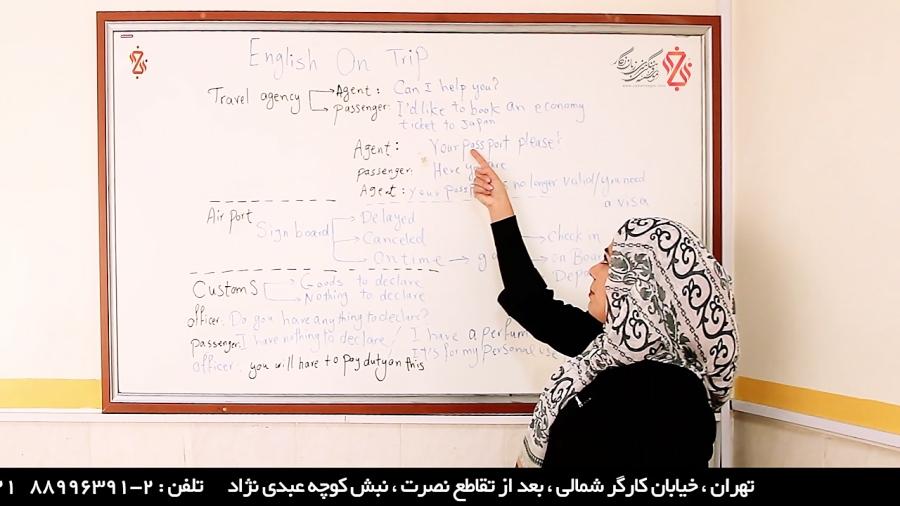 English On Trip
Travel agency Agent: Can I help you?
passenger: I'd like to book an economy
ticket to Japan
Agent: Your passport please!
passenger: Here you are
Agent: Your no longer valid/you need
a visa
Air port Sign board Delayed
Canceled check in
On time on Board
Customs Goods to declare
Nothing to declare
officer: Do you have anything to declare?
passenger: I have nothing to declare! I have a
officer: you will have to pay duty on this It's for my personal use
تهران ، خیابان کارگر شمالی ، بعد از تقاطع نصرت ، نبش کوچه عبدی نژاد تلفن : ۲-۸۸۹۹۶۳۹۱ ۲۱